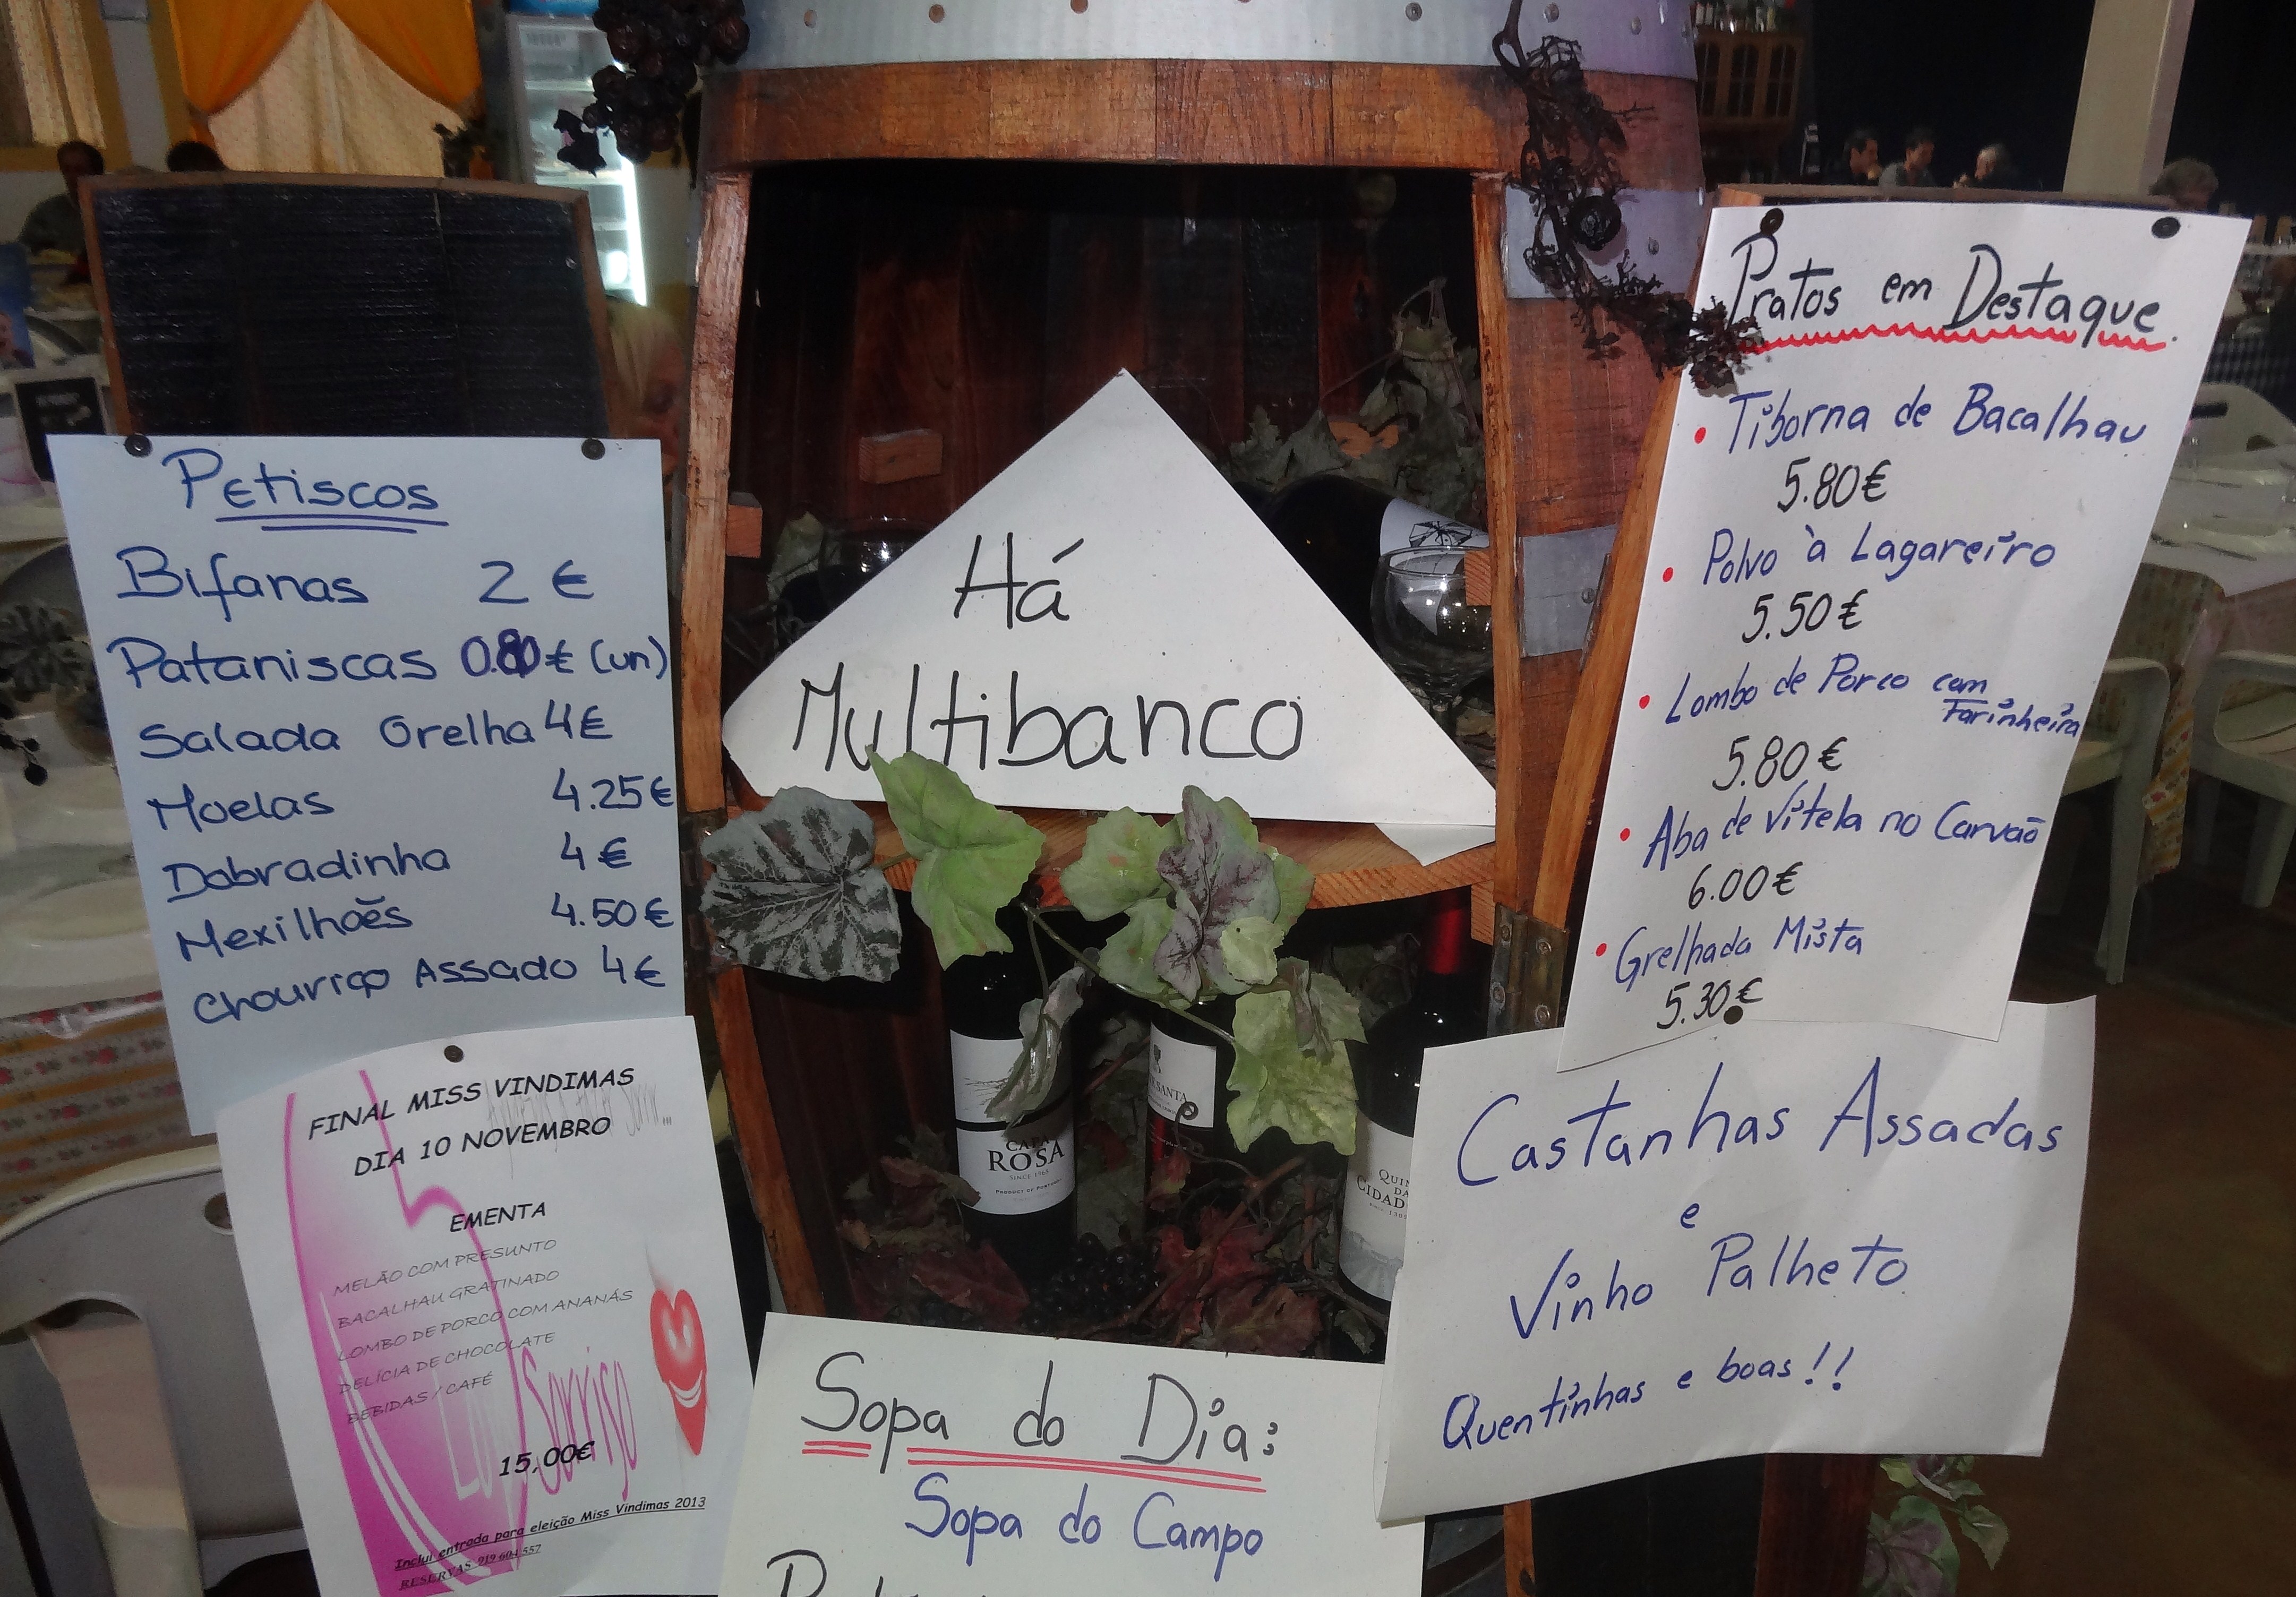 Petiscos
Bifanas 2 €
Pataniscas 0.80 € (un)
Salada Orelha 4 €
Moelas 4.25 €
Dobradinha 4 €
Mexilhões 4.50 €
Chouriço Assado 4 €
FINAL MISS VINDIMAS
DIA 10 NOVEMBRO
EMENTA
MELÃO COM PRESUNTO
BACALHAU GRATINADO
LOMBO DE PORCO COM ANANÁS
DELÍCIA DE CHOCOLATE
BEBIDAS / CAFÉ
Sorriso
15,00€
Inclui entrada para eleição Miss Vindimas 2013
RESERVAS 919 604 557
Há
Multibanco
CAPA
ROSA
PRODUCT OF PORTUGAL
SANTA
QUIN
DA
CIDAD
Sopa do Dia:
Sopa do Campo
Pratos em Destaque
• Tiborna de Bacalhau
5.80 €
• Polvo à Lagareiro
5.50 €
• Lombo de Porco com
Farinheira
5.80 €
• Aba de Vitela no Carvão
6.00 €
• Grelhada Mista
5.30 €
Castanhas Assadas
e
Vinho Palheto
Quentinhas e boas!!